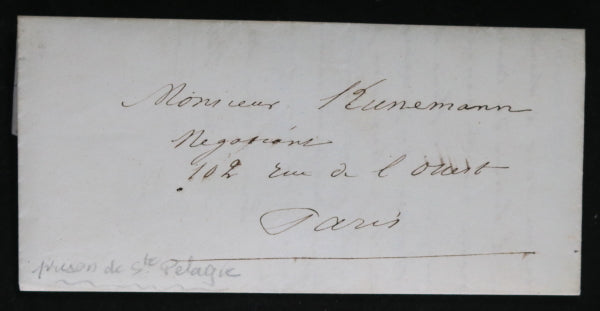 Monsieur Kunemann
Negociant
102 rue de l'Ouest
Paris
prison de Ste Pelagie